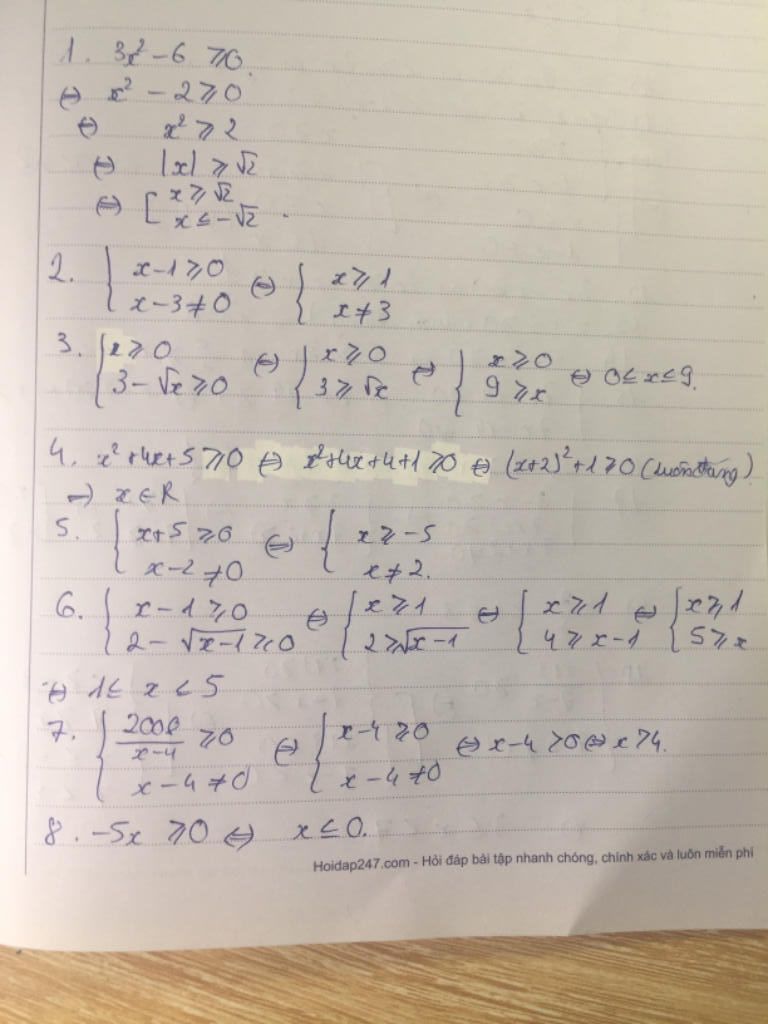 1. 3x² - 6 ≥ 0.
⇔ x² - 2 ≥ 0
⇔ x² ≥ 2
⇔ |x| ≥ √2
⇔ [ x ≥ √2
x ≤ -√2 .
2. { x-1 ≥ 0 ⇔ { x ≥ 1
x-3 ≠ 0 x ≠ 3
3. { x ≥ 0 ⇔ { x ≥ 0 ⇔ { x ≥ 0 ⇔ 0 ≤ x ≤ 9.
3 - √x ≥ 0 3 ≥ √x 9 ≥ x
4. x² + 4x + 5 ≥ 0 ⇔ x² + 4x + 4 + 1 ≥ 0 ⇔ (x+2)² + 1 ≥ 0 (luôn đúng)
→ x ∈ R
5. { x+5 ≥ 0 ⇔ { x ≥ -5
x-2 ≠ 0 x ≠ 2.
6. { x-1 ≥ 0 ⇔ { x ≥ 1 ⇔ { x ≥ 1 ⇔ { x ≥ 1
2 - √(x-1) ≥ 0 2 ≥ √(x-1) 4 ≥ x-1 5 ≥ x
⇔ 1 ≤ x ≤ 5
7. { 2008/(x-4) ≥ 0 ⇔ { x-4 ≥ 0 ⇔ x-4 > 0 ⇔ x > 4.
x-4 ≠ 0 x-4 ≠ 0
8. -5x ≥ 0 ⇔ x ≤ 0.
Hoidap247.com - Hỏi đáp bài tập nhanh chóng, chính xác và luôn miễn phí